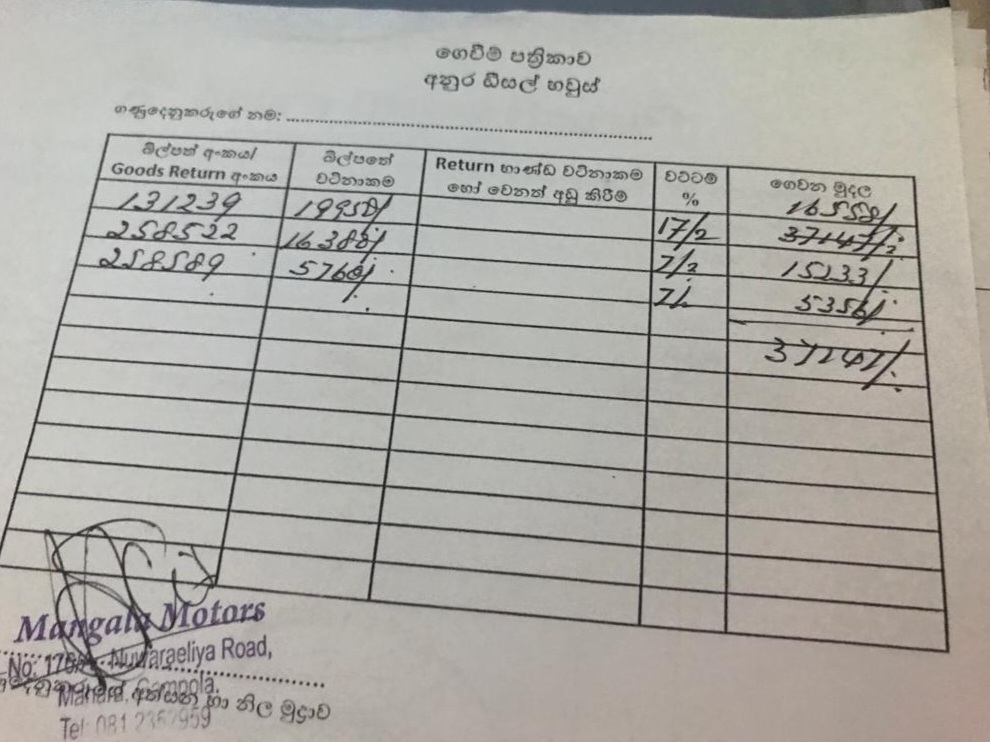 ගෙවීම් පත්‍රිකාව
අනුර ඩීසල් හවුස්
ගණුදෙනුකරුගේ නම:
බිල්පත් අංකය/ Goods Return අංකය බිල්පතේ වටිනාකම Return භාණ්ඩ වටිනාකම හෝ වෙනත් අඩු කිරීම් වට්ටම් % ගෙවන මුදල
131239 19950/. 16558/.
258522 16380/. 17/2 37147/.
258589 5760/. 7/2 15233/.
7/. 5356/.
37147/.
Mangala Motors
No: Nuwaraeliya Road,
Gampola.
ගණුදෙනුකරුගේ අත්සන හා නිල මුද්‍රාව
Tel: 081 2352959